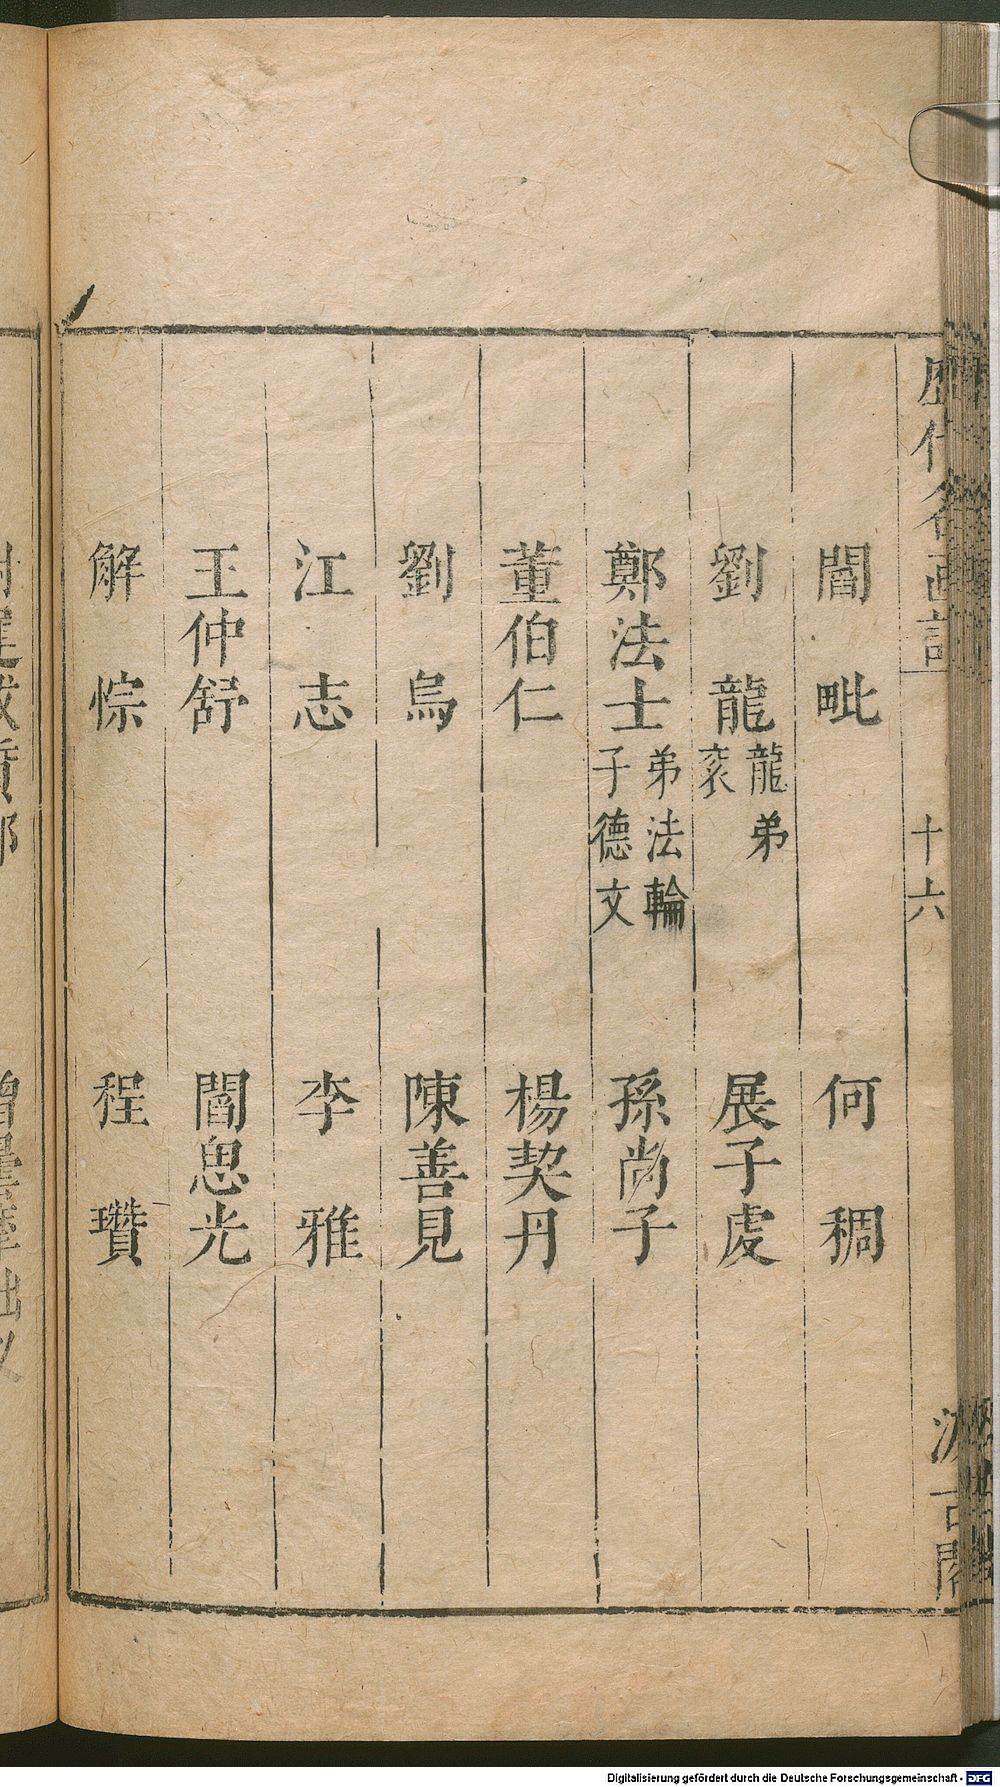 歷代名画記 十六 汲古閣
閻毗 何稠
劉龍 龍弟袤 展子虔
鄭法士 弟法輪子德文 孫尚子
董伯仁 楊契丹
劉烏 陳善見
江志 李雅
王仲舒 閻思光
解悰 程瓚
Digitalisierung gefördert durch die Deutsche Forschungsgemeinschaft - DFG